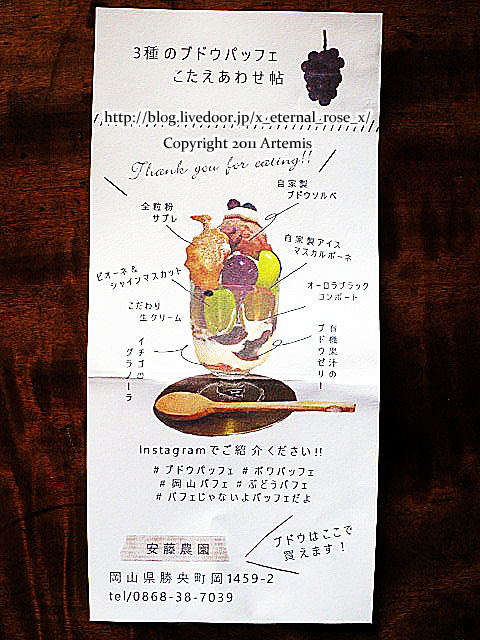 3種のブドウパッフェ
こたえあわせ帖
http://blog.livedoor.jp/x_eternal_rose_x/
Copyright 2011 Artemis
Thank you for eating!!
自家製
ブドウソルベ
全粒粉
サブレ
自家製アイス
マスカルポーネ
ピオーネ&
シャインマスカット
オーロラブラック
コンポート
こだわり
生クリーム
有機果汁の
ブドウゼリー
イチゴの
グラノーラ
Instagramでご紹介ください!!
#ブドウパッフェ #ポワパッフェ
#岡山パフェ #ぶどうパフェ
#パフェじゃないよパッフェだよ
安藤農園
ブドウはここで
買えます!
岡山県勝央町岡1459-2
tel/0868-38-7039